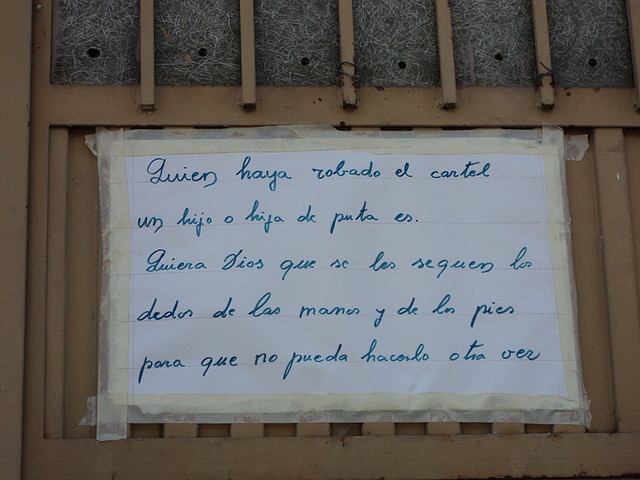 Quien haya robado el cartel
un hijo o hija de puta es.
Quiera Dios que se les sequen los
dedos de las manos y de los pies
para que no pueda hacerlo otra vez